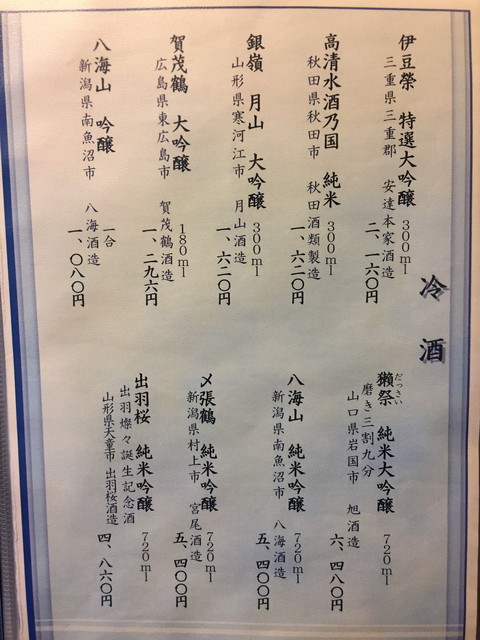 冷酒
伊豆榮 特選大吟醸 300ml
三重県三重郡 安達本家酒造
二、一六〇円
高清水酒乃国 純米 300ml
秋田県秋田市 秋田酒類製造
一、六二〇円
銀嶺 月山 大吟醸 300ml
山形県寒河江市 月山酒造
一、六二〇円
賀茂鶴 大吟醸 180ml
広島県東広島市 賀茂鶴酒造
一、二九六円
八海山 吟醸 一合
新潟県南魚沼市 八海酒造
一、〇八〇円
だっさい
獺祭 純米大吟醸 720ml
磨き三割九分
山口県岩国市 旭酒造
六、四八〇円
八海山 純米吟醸 720ml
新潟県南魚沼市 八海酒造
五、四〇〇円
〆張鶴 純米吟醸 720ml
新潟県村上市 宮尾酒造
五、四〇〇円
出羽桜 純米吟醸 720ml
出羽燦々誕生記念酒
山形県天童市 出羽桜酒造
四、八六〇円